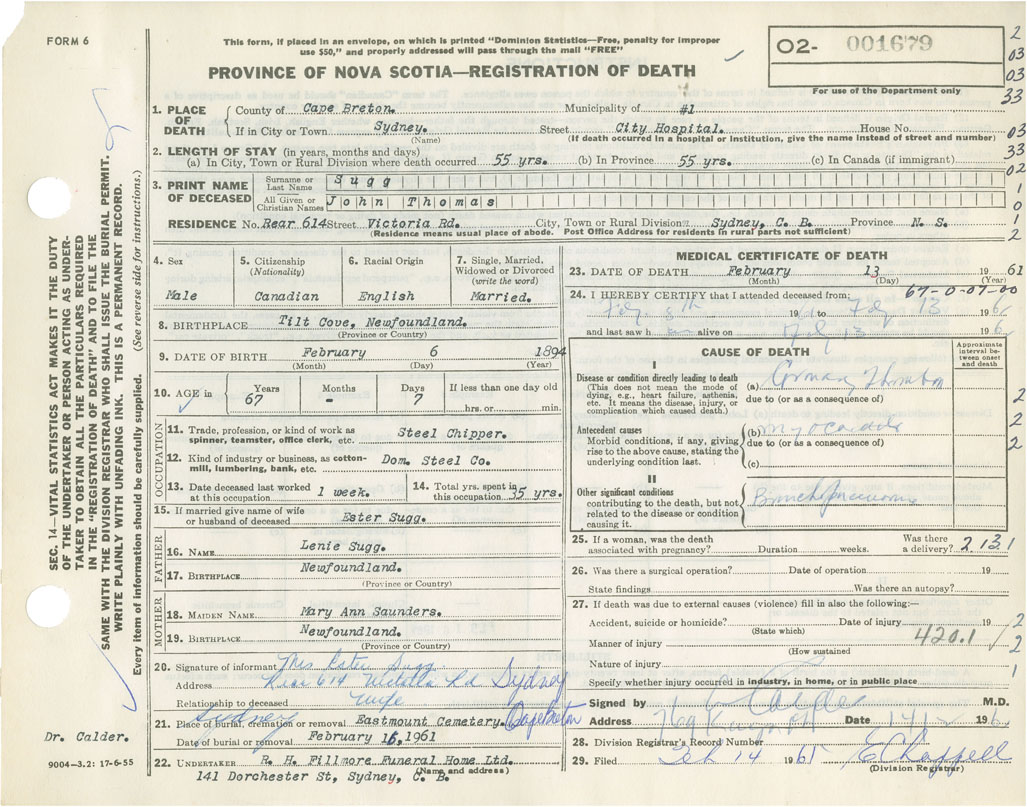 FORM 6
This form, if placed in an envelope, on which is printed "Dominion Statistics—Free, penalty for improper
use $50," and properly addressed will pass through the mail "FREE"
PROVINCE OF NOVA SCOTIA—REGISTRATION OF DEATH
02- 001679
For use of the Department only
2
03
03
33
03
33
02
1
0
1
2
1. PLACE OF DEATH
County of Cape Breton. Municipality of #1
If in City or Town Sydney. Street City Hospital. House No.
(Name) (If death occurred in a hospital or institution, give the name instead of street and number)
2. LENGTH OF STAY (in years, months and days)
(a) In City, Town or Rural Division where death occurred 55 yrs. (b) In Province 55 yrs. (c) In Canada (if immigrant)
3. PRINT NAME OF DECEASED
Surname or Last Name Sugg
All Given or Christian Names John Thomas
RESIDENCE No. Rear 614 Street Victoria Rd. City, Town or Rural Division Sydney, C. B. Province N. S.
(Residence means usual place of abode. Post Office Address for residents in rural parts not sufficient)
4. Sex
Male
5. Citizenship (Nationality)
Canadian
6. Racial Origin
English
7. Single, Married, Widowed or Divorced (write the word)
Married.
8. BIRTHPLACE Tilt Cove, Newfoundland.
(Province or Country)
9. DATE OF BIRTH February 6 1894
(Month) (Day) (Year)
10. AGE in
Years 67
Months -
Days 7
If less than one day old
hrs. or min.
OCCUPATION
11. Trade, profession, or kind of work as spinner, teamster, office clerk, etc. Steel Chipper.
12. Kind of industry or business, as cotton-mill, lumbering, bank, etc. Dom. Steel Co.
13. Date deceased last worked at this occupation 1 week.
14. Total yrs. spent in this occupation 35 yrs.
15. If married give name of wife or husband of deceased Ester Sugg.
FATHER
16. NAME Lenie Sugg.
17. BIRTHPLACE Newfoundland.
(Province or Country)
MOTHER
18. MAIDEN NAME Mary Ann Saunders.
19. BIRTHPLACE Newfoundland.
(Province or Country)
20. Signature of informant Mrs Ester Sugg
Address Rear 614 Victoria Rd Sydney
Relationship to deceased wife
21. Place of burial, cremation or removal Eastmount Cemetery. Sydney Cape Breton
Date of burial or removal February 16, 1961
22. UNDERTAKER R. H. Fillmore Funeral Home Ltd.
141 Dorchester St, Sydney, C. B.
(Name and address)
MEDICAL CERTIFICATE OF DEATH
23. DATE OF DEATH February 13 1961
(Month) (Day) (Year)
67-0-07-00
24. I HEREBY CERTIFY that I attended deceased from: 8th 19 to 13 19
and last saw h alive on 13 19
CAUSE OF DEATH
Approximate interval between onset and death
I
Disease or condition directly leading to death
(This does not mean the mode of dying, e.g., heart failure, asthenia, etc. It means the disease, injury, or complication which caused death.)
(a) Thrombosis
due to (or as a consequence of)
Antecedent causes
Morbid conditions, if any, giving rise to the above cause, stating the underlying condition last.
(b) Myocarditis
due to (or as a consequence of)
(c)
II
Other significant conditions
contributing to the death, but not related to the disease or condition causing it.
Bronchopneumonia
2
2
2
25. If a woman, was the death associated with pregnancy? Duration weeks. Was there a delivery? 2.13.1
26. Was there a surgical operation? Date of operation 19
State findings Was there an autopsy?
27. If death was due to external causes (violence) fill in also the following:—
Accident, suicide or homicide? Date of injury 19
(State which)
Manner of injury 420.1
(How sustained
Nature of injury
Specify whether injury occurred in industry, in home, or in public place
2
2
1
Signed by Calder M.D.
Address Date 14 19
28. Division Registrar's Record Number
29. Filed Feb 14 1961 E Chappell
(Division Registrar)
SEC. 14—VITAL STATISTICS ACT MAKES IT THE DUTY
OF THE UNDERTAKER OR PERSON ACTING AS UNDER-
TAKER TO OBTAIN ALL THE PARTICULARS REQUIRED
IN THE "REGISTRATION OF DEATH" AND TO FILE THE
SAME WITH THE DIVISION REGISTRAR WHO SHALL ISSUE THE BURIAL PERMIT.
WRITE PLAINLY WITH UNFADING INK. THIS IS A PERMANENT RECORD.
Every item of information should be carefully supplied. (See reverse side for instructions.)
Dr. Calder.
9004—3.2: 17-6-55